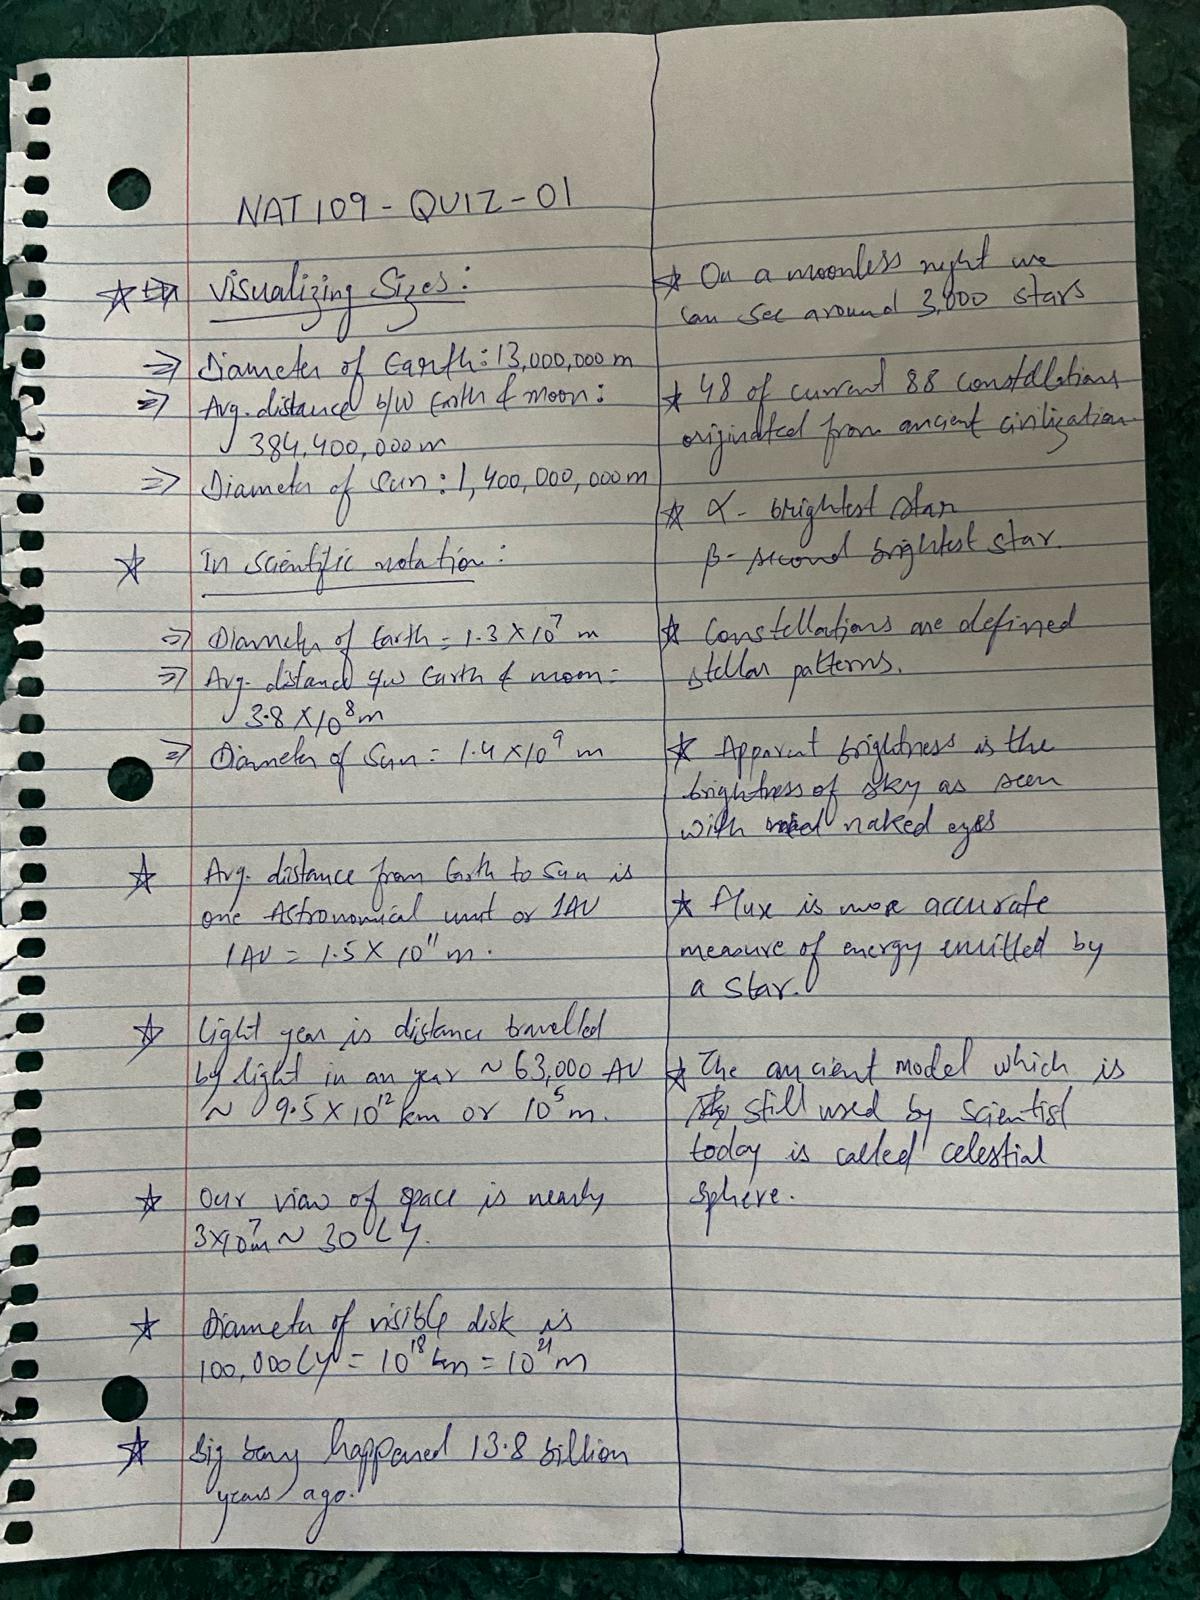 NAT 109 - QUIZ - 01
Visualizing Sizes:
⇒ Diameter of Earth: 13,000,000 m
⇒ Avg. distance b/w Earth & moon:
384,400,000 m
⇒ Diameter of Sun: 1,400,000,000 m
☆ In scientific notation:
⇒ Diameter of Earth = 1.3 × 10⁷ m
⇒ Avg. distance b/w Earth & moon =
3.8 × 10⁸ m
⇒ Diameter of Sun = 1.4 × 10⁹ m
☆ Avg. distance from Earth to Sun is
one Astronomical unit or 1AU
1AU = 1.5 × 10¹¹ m.
☆ Light year is distance travelled
by light in an year ~ 63,000 AU
~ 9.5 × 10¹² km or 10⁵ m.
☆ Our view of space is nearly
3×10⁷m ~ 30 LY.
☆ Diameter of visible disk is
100,000 LY = 10¹⁸ km = 10²¹ m
☆ Big bang happened 13.8 billion
years ago.
☆ On a moonless night we
can see around 3,000 stars
☆ 48 of current 88 constellations
originated from ancient civilization
☆ α - brightest star
β - second brightest star.
☆ Constellations are defined
stellar patterns.
☆ Apparent brightness is the
brightness of sky as seen
with naked eyes
☆ flux is more accurate
measure of energy emitted by
a star.
☆ The ancient model which is
still used by scientist
today is called celestial
sphere.